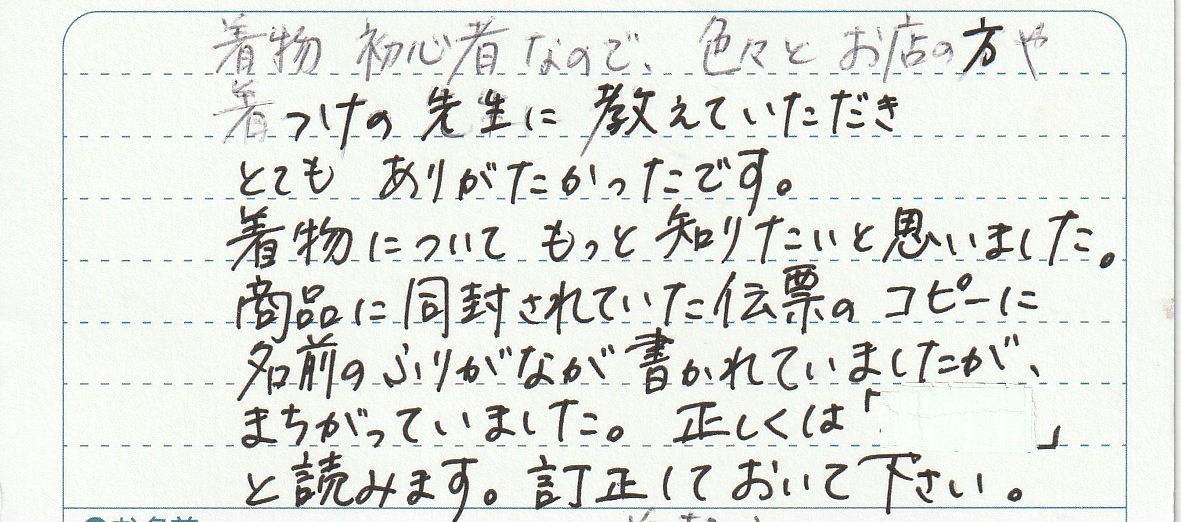 着物 初心者なので、色々とお店の方や
着つけの先生に教えていただき
とても ありがたかったです。
着物について もっと知りたいと思いました。
商品に同封されていた伝票のコピーに
名前のふりがなが書かれていましたが、
まちがっていました。正しくは「 」
と読みます。訂正しておいて下さい。